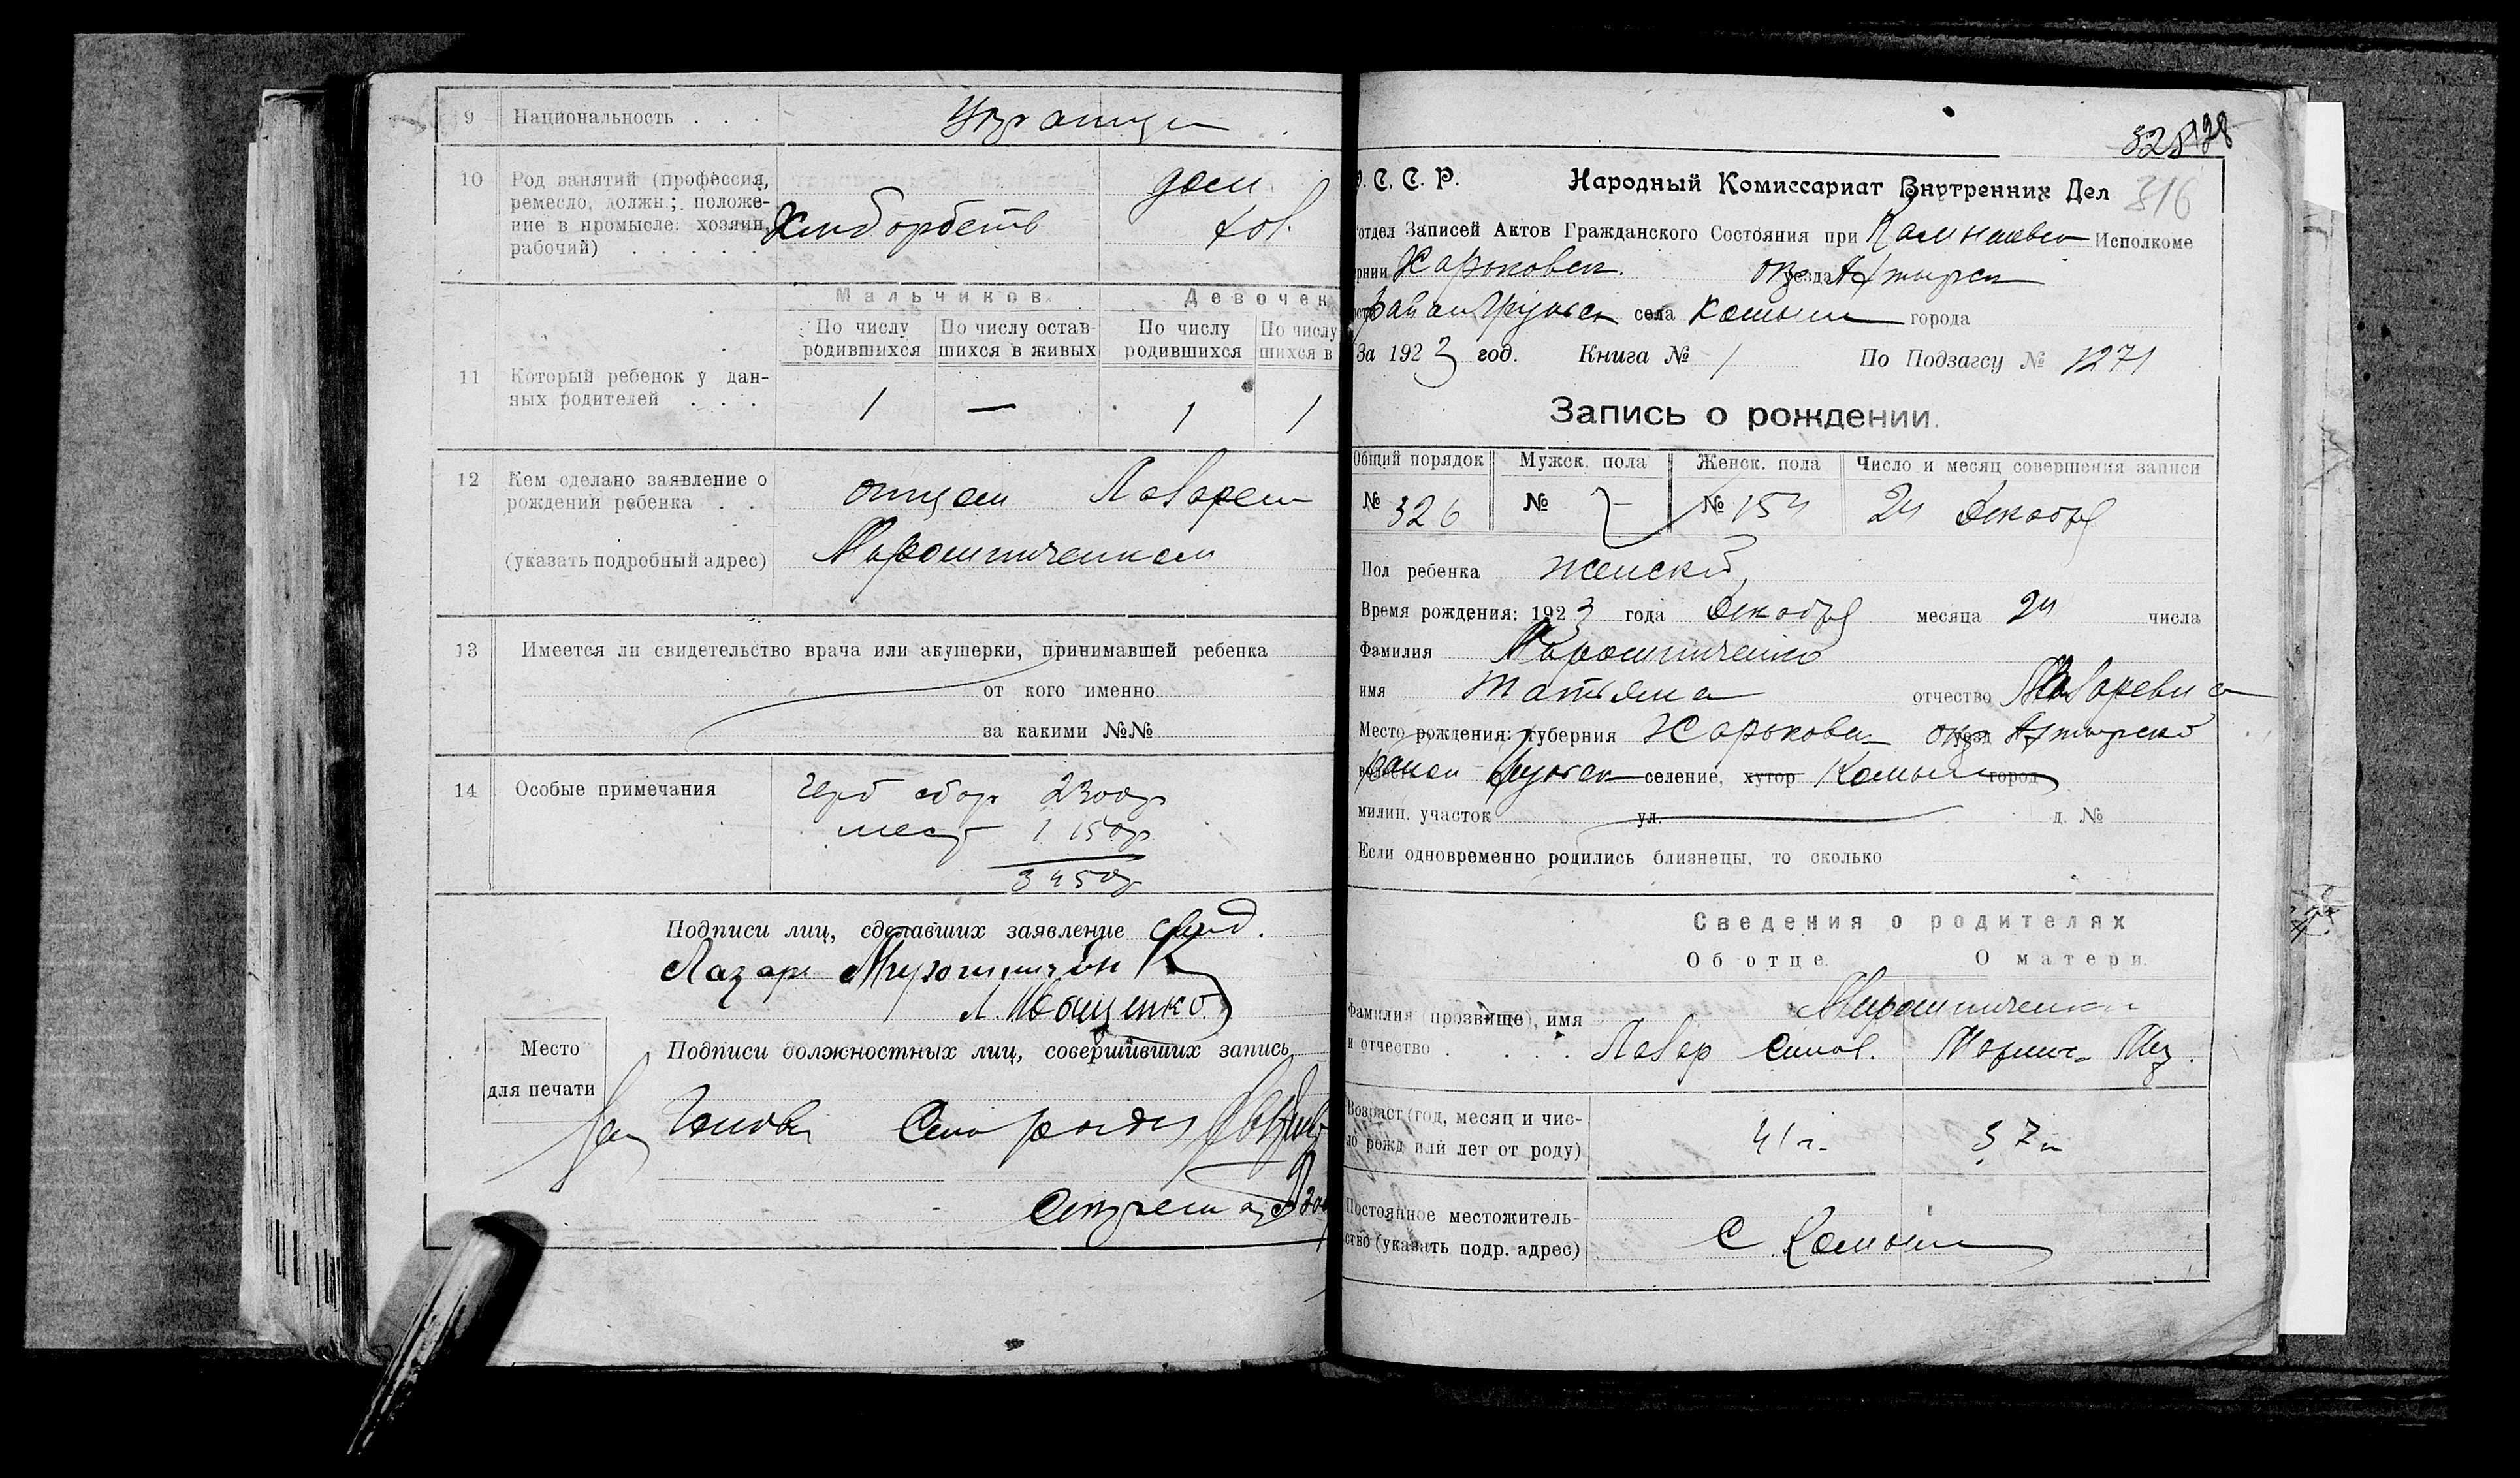 9 Национальность . . . Украинцы
10 Род занятий (профессия,
ремесло, должн.; положе-
ние в промысле: хозяин,
рабочий) . . . . . Хлиборобств
дом
хоз.
Мальчиков Девочек
По числу родившихся По числу остав-шихся в живых По числу родившихся По числу шихся в
11 Который ребенок у дан-
ных родителей . . . 1 — 1 1
12 Кем сделано заявление о
рождении ребенка . . отцом Лазарем
(указать подробный адрес) Мирошниченком
13 Имеется ли свидетельство врача или акушерки, принимавшей ребенка
от кого именно
за какими №№
14 Особые примечания герб сбор 2300р
мест 1150р
3450р
Подписи лиц, сделавших заявление
Лазарь
Л. Иващенко
Место
для печати
Подписи должностных лиц, совершивших запись
328
316
С. С. Р. Народный Комиссариат Внутренних Дел
отдел Записей Актов Гражданского Состояния при Исполкоме
рнии Харьковск. окр уезда Ахтырск
район села Комыши города
За 1923 год. Книга № 1 По Подзагсу № 1271
Запись о рождении.
Общий порядок Мужск. пола Женск. пола Число и месяц совершения записи
№ 326 № — № 154 24 Декабря
Пол ребенка женский
Время рождения: 1923 года Декабря месяца 24 числа
Фамилия Мирошниченко
имя Татьяна отчество Лазаревна
Место рождения: губерния Харьковск окр уезд Ахтырско
район селение, хутор Комыши город
милиц. участок ул. д. №
Если одновременно родились близнецы, то сколько
Сведения о родителях
Об отце. О матери.
Мирошниченки
Фамилия (прозвище), имя
и отчество . . . . Лазар Марин
Возраст (год, месяц и чис-
ло рожд или лет от роду) 41 г. 37 л
Постоянное местожитель-
ство (указать подр. адрес) С Комыши